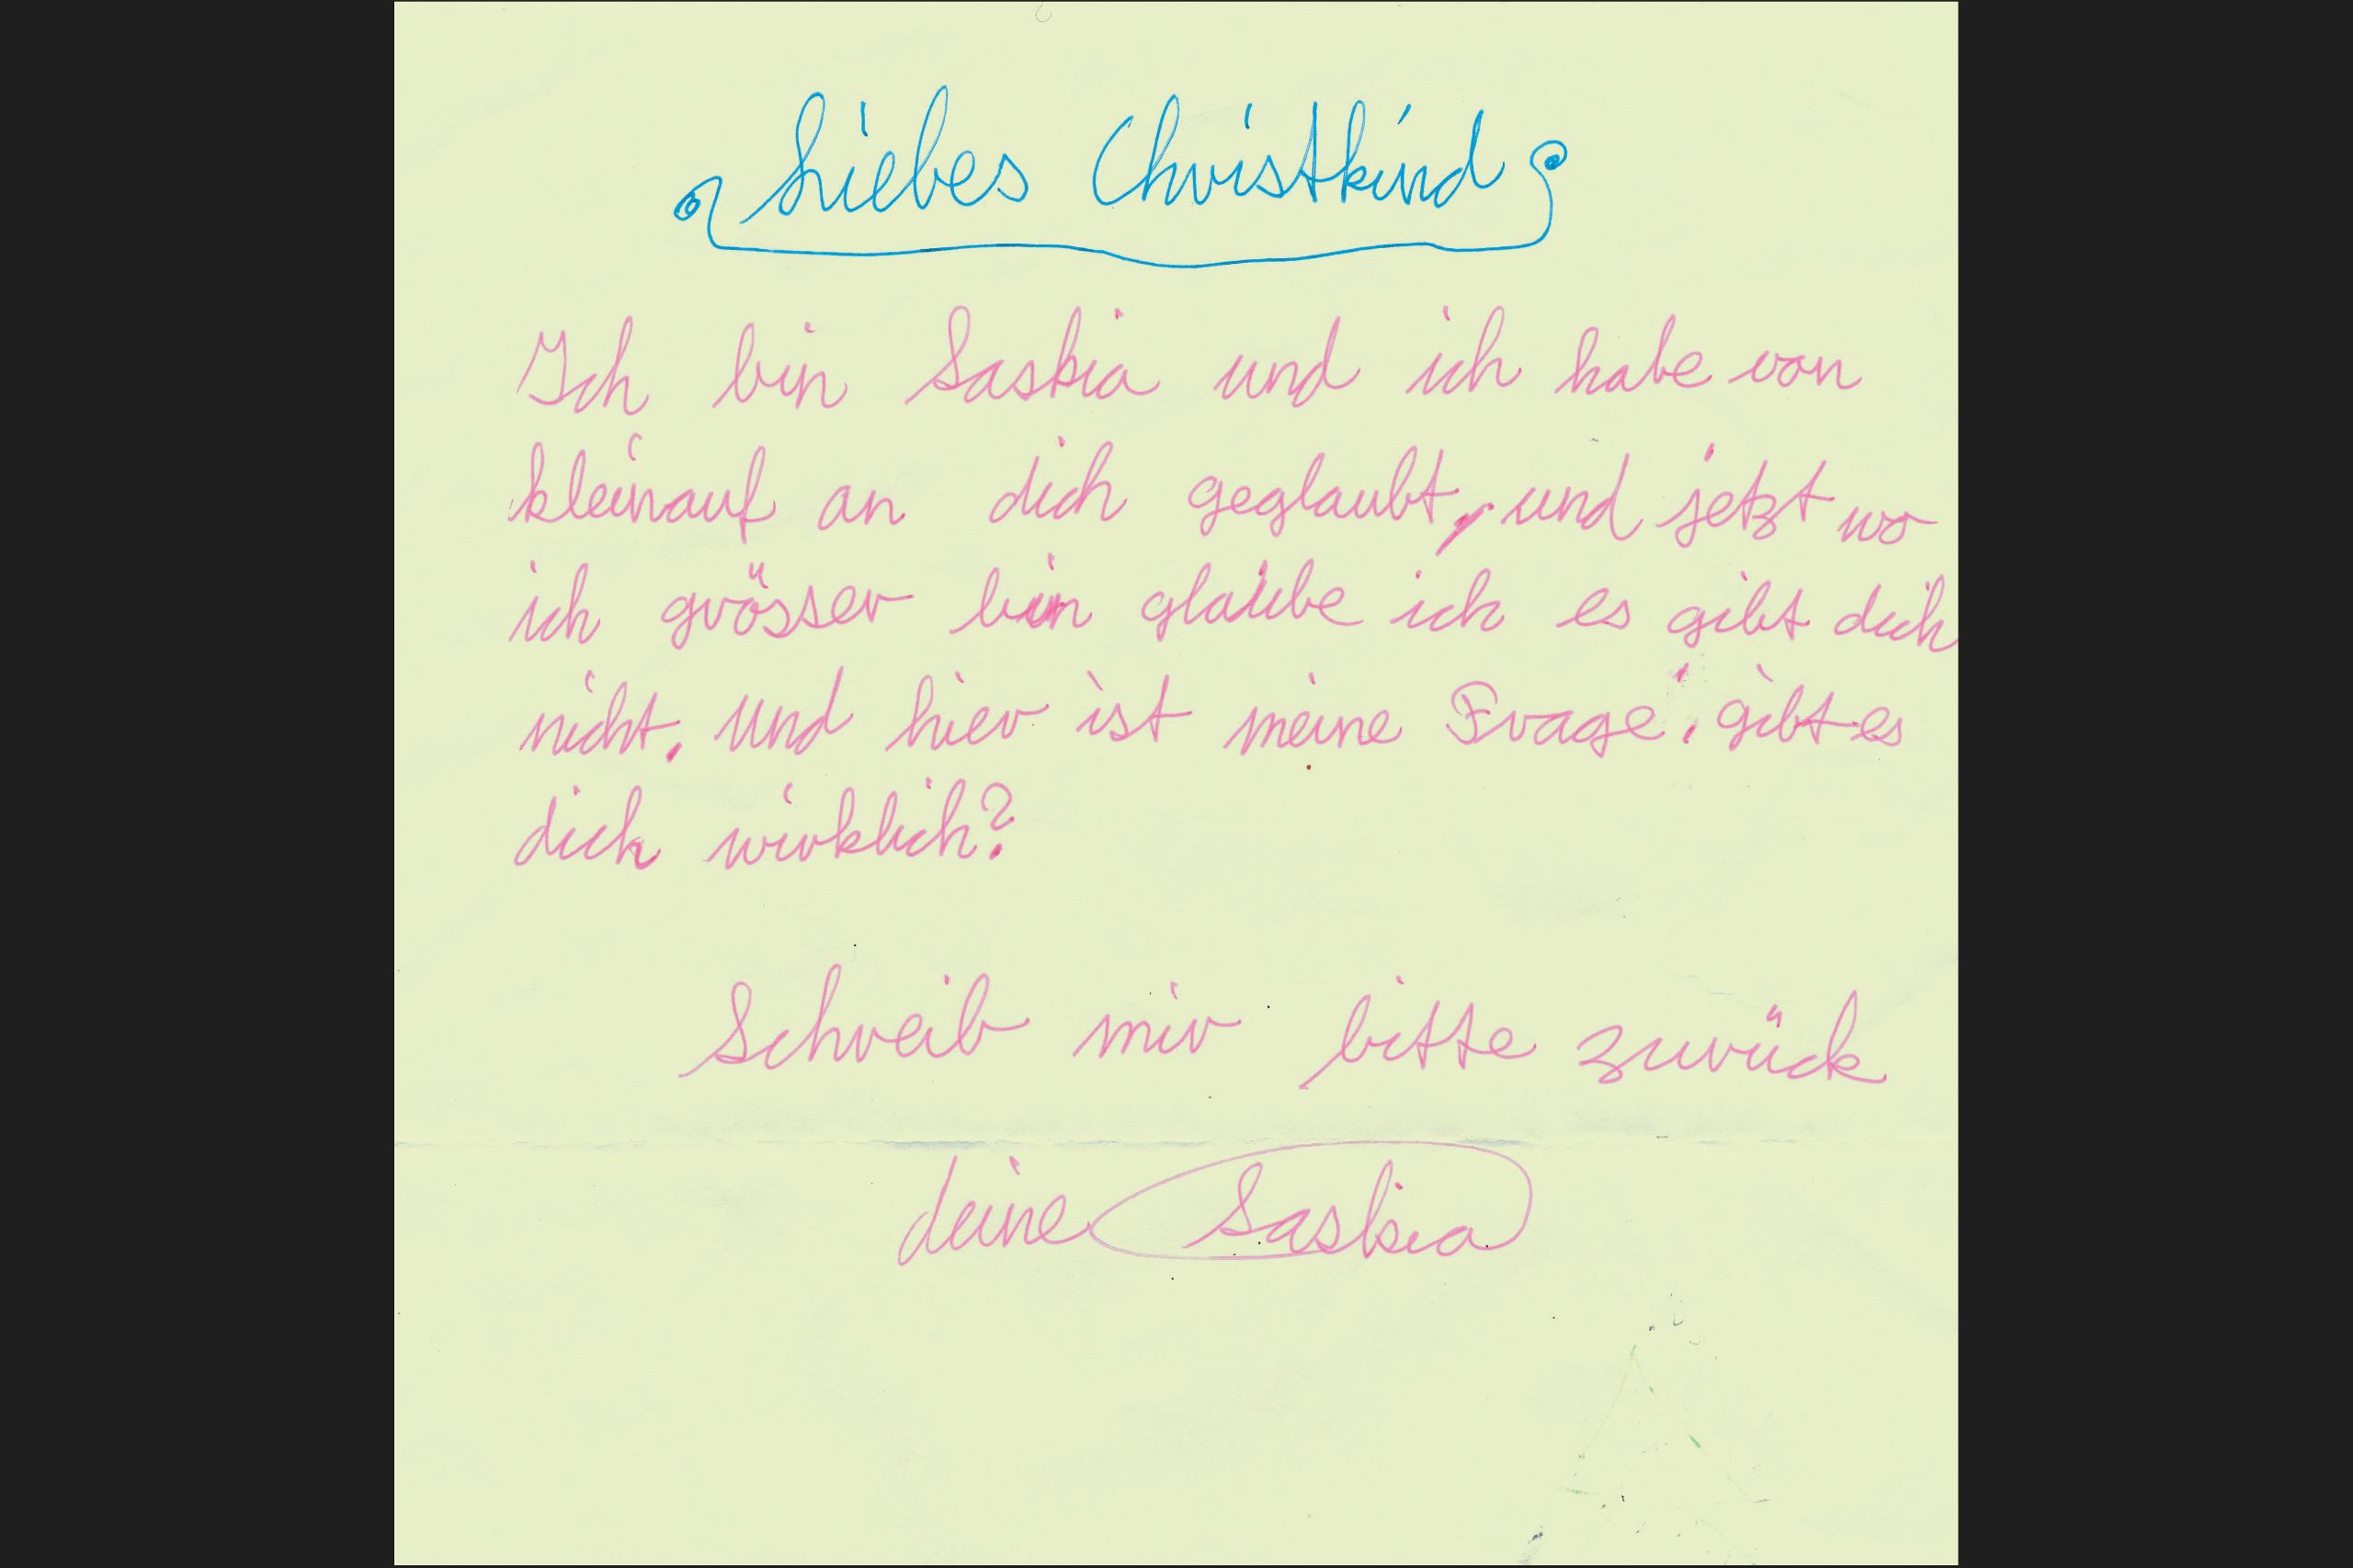 Liebes Christkind
Ich bin Saskia und ich habe von
kleinauf an dich geglaubt, und jetzt wo
ich grösser bin glaube ich es gibt dich
nicht. Und hier ist meine Frage: gibt es
dich wirklich?
Schreib mir bitte zurück
deine Saskia